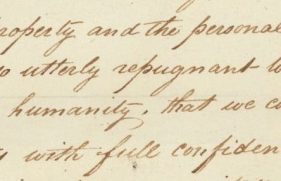 roperty and the personal
so utterly repugnant to
humanity, that we co
with full confiden